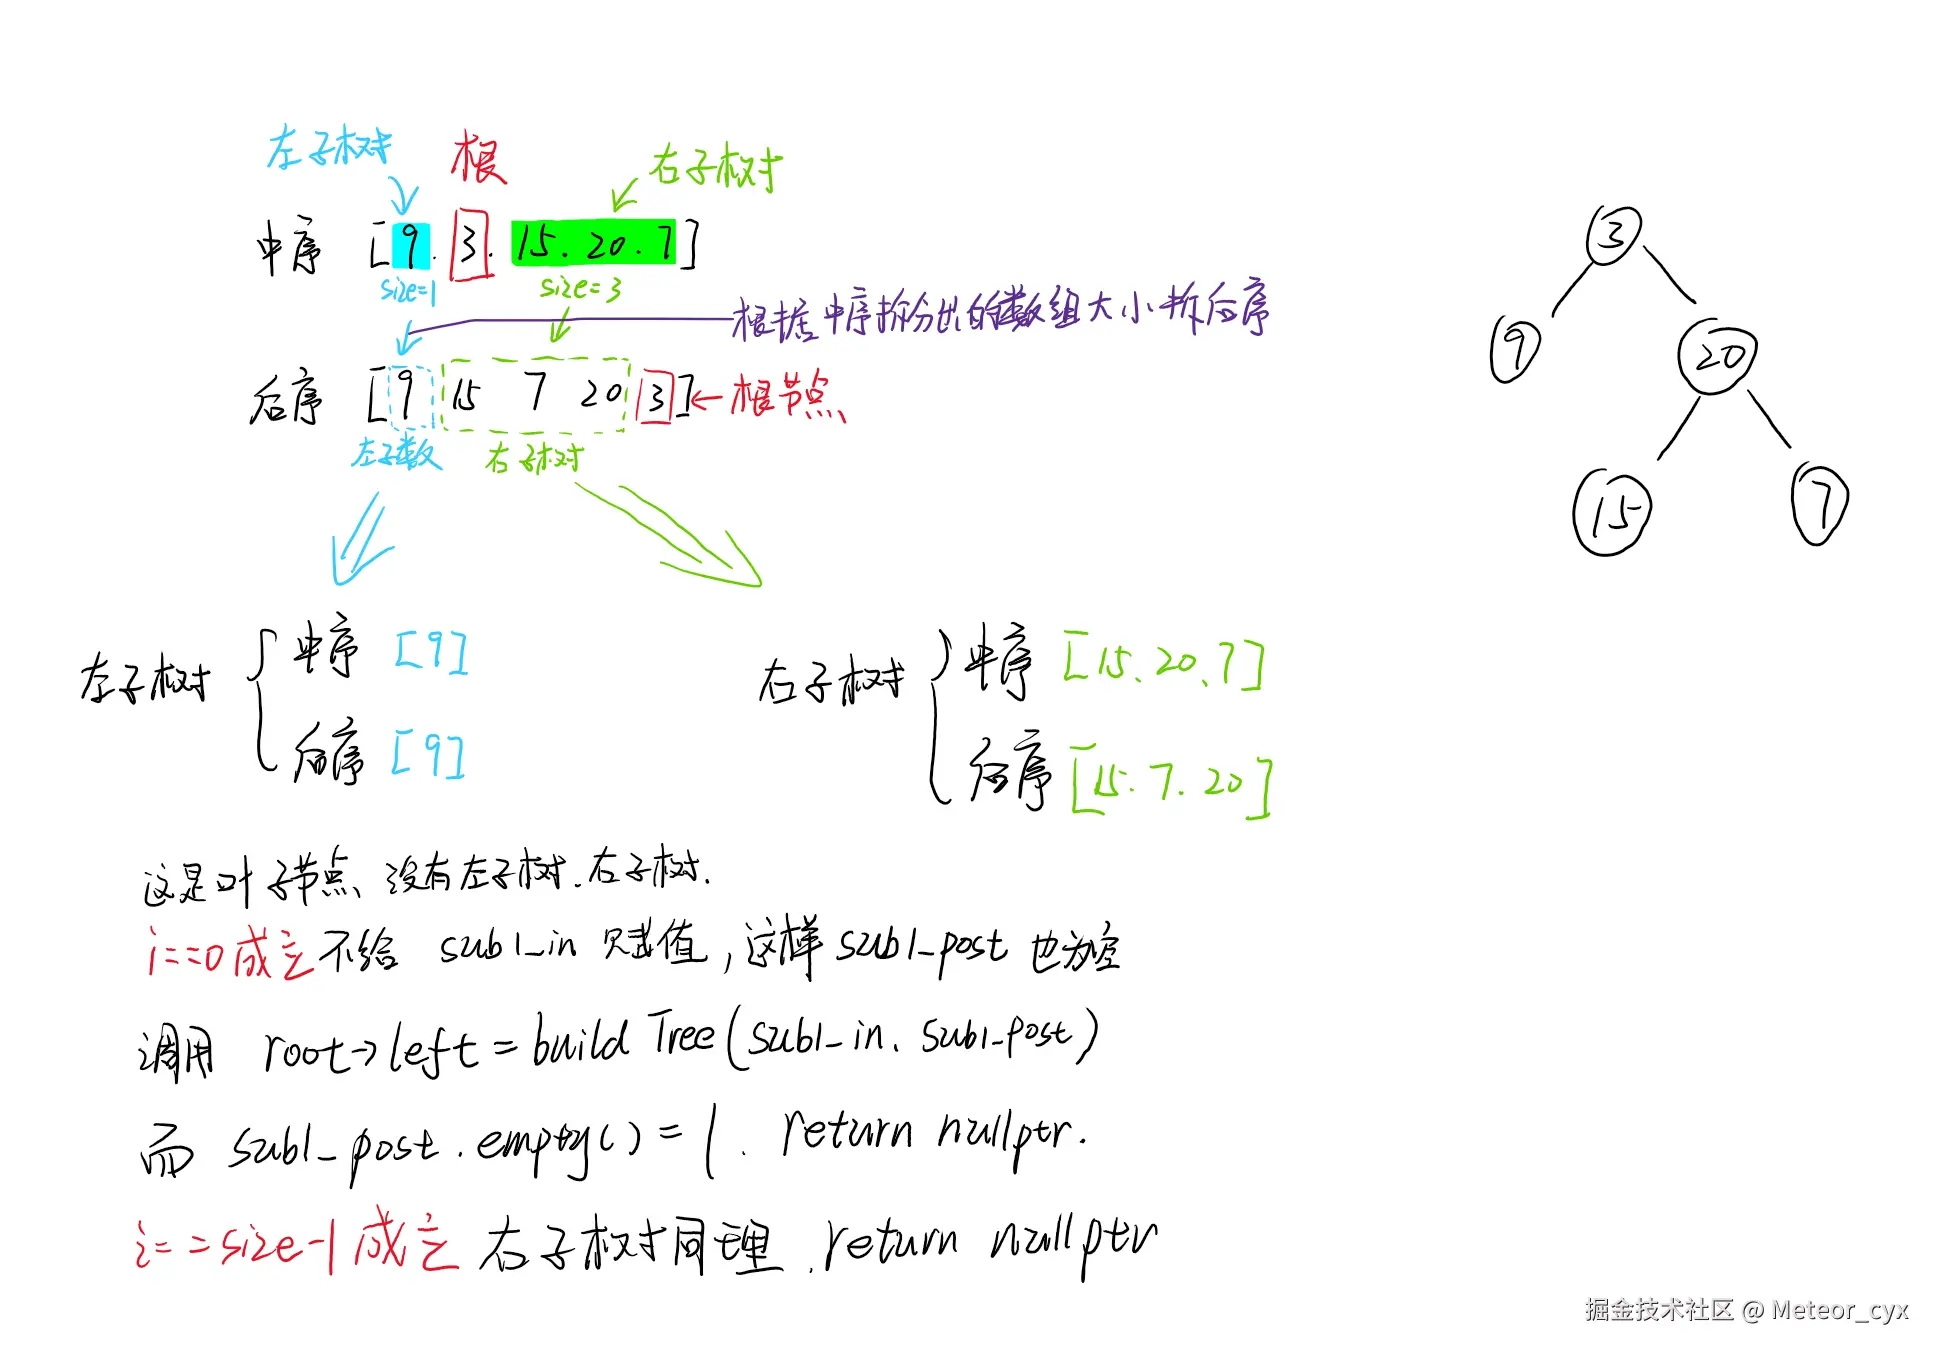 左子树 根 右子树
中序 [9. 3. 15. 20. 7]
size=1 size=3
根据中序拆分出的数组大小拆后序
后序 [9 15 7 20 3] ← 根节点
左子数 右子树
3
9 20
15 7
左子树 { 中序 [9]
后序 [9]
右子树 { 中序 [15、20、7]
后序 [15. 7. 20]
这是叶子节点、没有左子树.右子树.
i==0成立不给 sub1_in 赋值,这样sub1_post 也为空
调用 root->left = buildTree(sub1_in、sub1_post)
而 sub1_post.empty() = 1. return nullptr.
i==size-1成立 右子树同理.return nullptr
掘金技术社区 @ Meteor_cyx